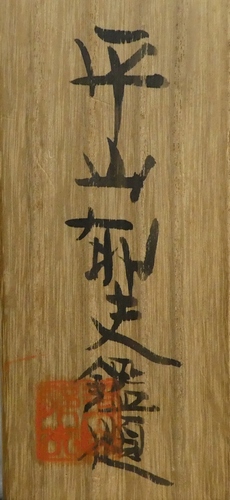 平山郁夫鑑題